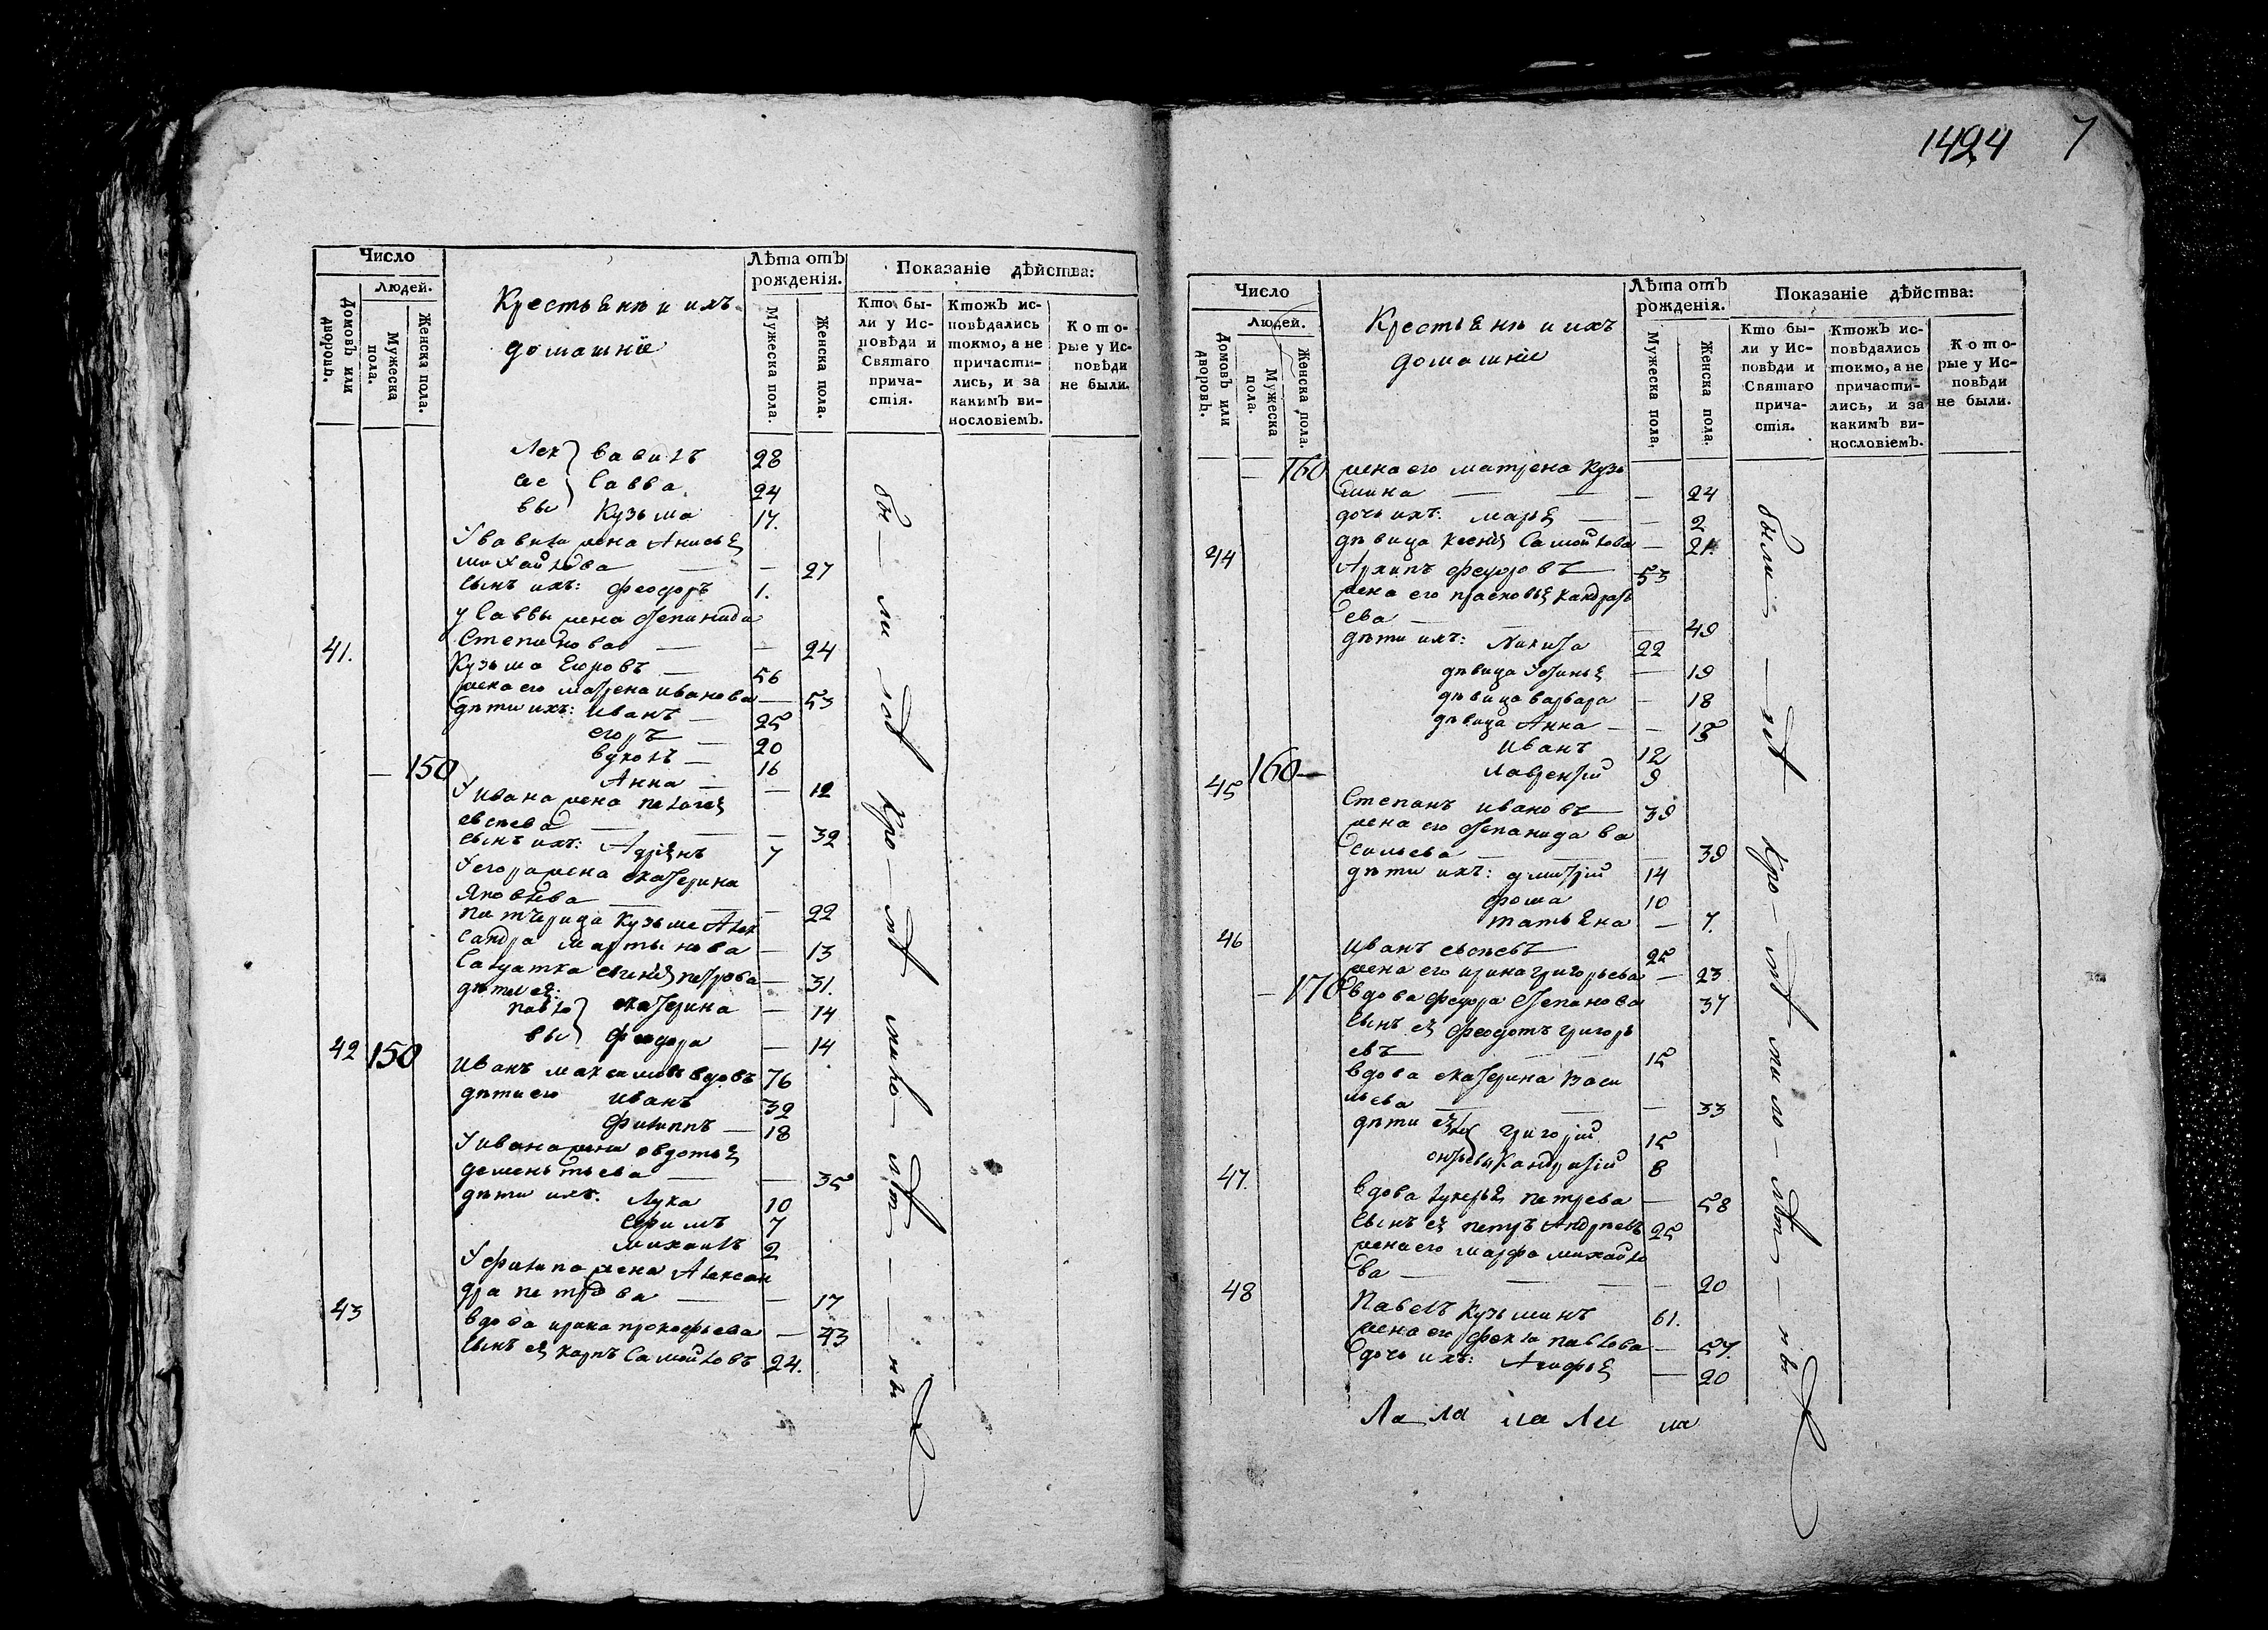 Число
Людей.
Домовъ или дворовъ.
Мужеска пола.
Женска пола.
Крестьяне и ихъ
домашніе
Лѣта отъ рожденія.
Мужеска пола.
Женска пола.
Показаніе дѣйства:
Кто были у Исповѣди и Святаго причастія.
Ктожъ исповѣдались токмо, а не причастились, и за какимъ винословіемъ.
Которые у Исповѣди не были.
Вавилъ 28
Савва 24
Кузьма 17.
У вавилы жена Анисья
михайлова — — 27
сынъ ихъ: феодоръ 1.
у Саввы жена Степанида
Степанова — — 24
41. Кузьма Егоровъ — 56
жена его матрена иванова — 53
дѣти ихъ: иванъ — 25
егоръ — 20
вуколъ — 16
— 150 Анна — — 12
У ивана жена пелагея
евсева — — 32
сынъ ихъ: Адріянъ 7
У егора жена екатерина
Яковлева — — 22
падчерица Кузьме Алек
сандра мартынова — 13
Салдатка евгенія петрова — 31.
дѣти ея:
павло
вы
екатерина — 14
феодора — 14
42 150 Иванъ максимовъ вдовъ 76
дѣти его иванъ 32
филиппъ — 18
У ивана жена овдотья
дементьева — — 35
дѣти ихъ: Лука 10
ефимъ 7
михаилъ 2
У филипа жена Алексан
дра петрова — — 17
43 вдова ирина прокофьева — 43
сынъ ея карпъ Самойловъ 24.
бы — ли
кро — мѣ
мало — лѣт — — — ны
1424 7
Число
Людей.
Домовъ или дворовъ.
Мужеска пола.
Женска пола.
Крестьяне и ихъ
домашніе
Лѣта отъ рожденія.
Мужеска пола.
Женска пола.
Показаніе дѣйства:
Кто были у Исповѣди и Святаго причастія.
Ктожъ исповѣдались токмо, а не причастились, и за какимъ винословіемъ.
Которые у Исповѣди не были.
— 160 жена его матрена кузь
мина — — — 24
дочь ихъ: марья — — 2
дѣвица ксенія Самойлова — 21.
44 Архипъ феодоровъ — 53
жена его прасковья кандрать
ева — — 49
дѣти ихъ: Никита 22
дѣвица Устинья — 19
дѣвица варвара — 18
дѣвица Анна — —
иванъ 12
160 — лаврентій 9
45 Степанъ ивановъ — 39
жена его степанида ва
сильева — — 39
дѣти ихъ: дмитрій 14
фома 10
татьяна — 7.
46 Иванъ евсѣевъ — 25
жена его ирина григорьева — 23
— 170 вдова федора степанова 37
сынъ ея феодотъ григорь
евъ — 15
вдова екатерина васи
льева — — — 33
дѣти ея григорій 15
кандратій 8
47. вдова лукерья петрова — 58
сынъ ея петръ Андреевъ 25
жена его марфа михайло
ва — — — — 20
48 Павелъ Кузьминъ 61.
жена его фекла павлова — 57.
дочь ихъ: Агафья — 20
были
кро — мѣ
мало — лѣт — — ны